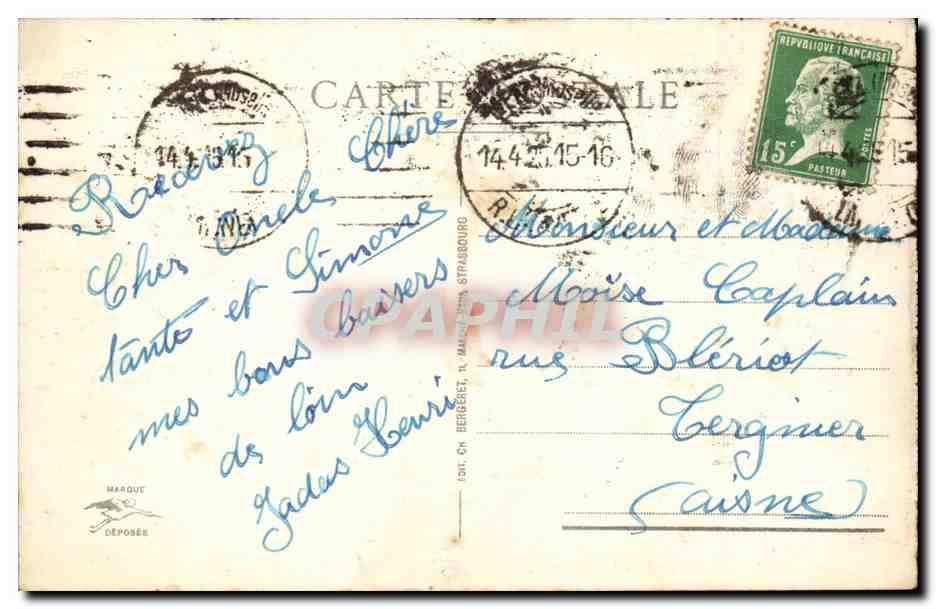 CARTE POSTALE
Recevez Chère
Cher Oncle
tante et Simone
mes bons baisers
de loin
Jadas Henri
MARQUE
DÉPOSÉE
EDIT. CH. BERGERET, STRASBOURG
Monsieur et Madame
Moïse Caplain
rue Blériot
Tergnier
(aisne)
REPVBLIQVE FRANÇAISE
15c
POSTES
PASTEUR
14.4.25.15-16
CPAPHIL